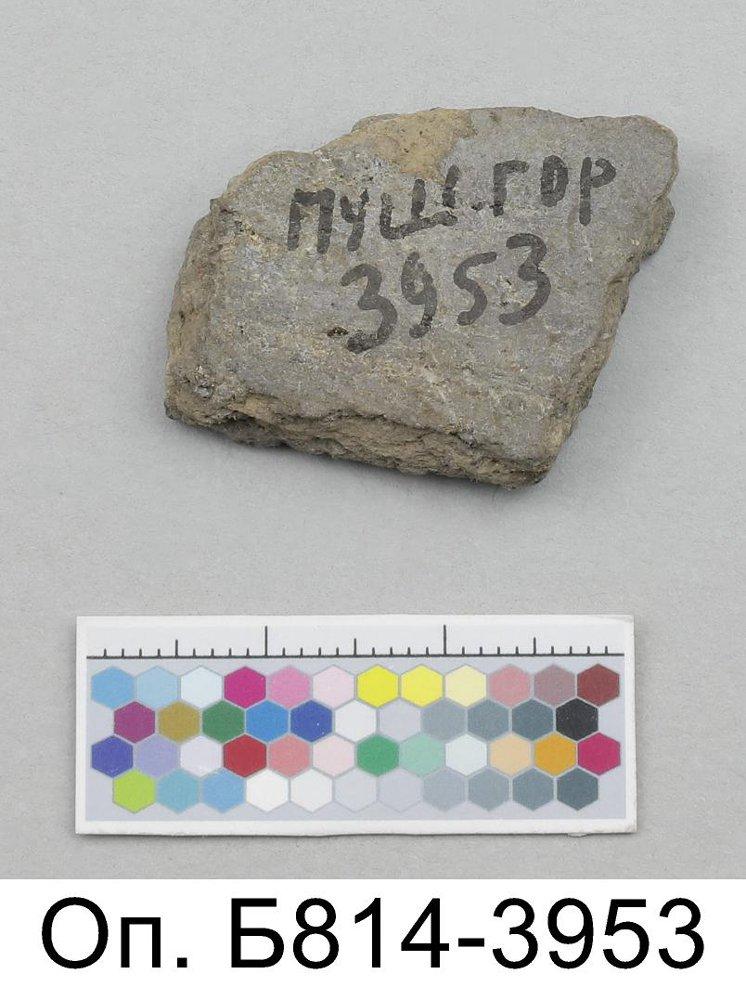 ПУШ.ГОР
3953
Оп. Б814-3953